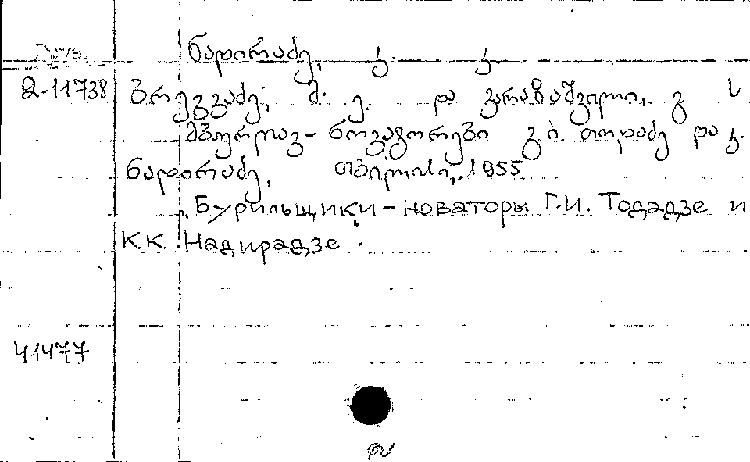 ნადირაძე, კ. კ
2-11738 გრეგვაძე, შ. ე. და ვარაზაშვილი, გ ს
მბურღავ-ნოვატორები გ.ი. თოდაძე და კ.
ნადირაძე, თბილისი, 1955
Бурильщики-новаторы Г.И. Тодадзе и
К.К. Надирадзе.
41477